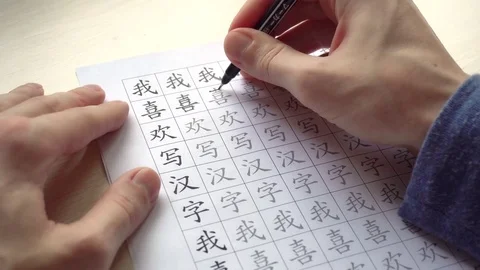 我我我
喜喜喜
欢欢欢欢欢
写写写写写
汉汉汉汉汉汉
字字字字字字
我我我我我我
喜喜喜喜喜
欢欢欢